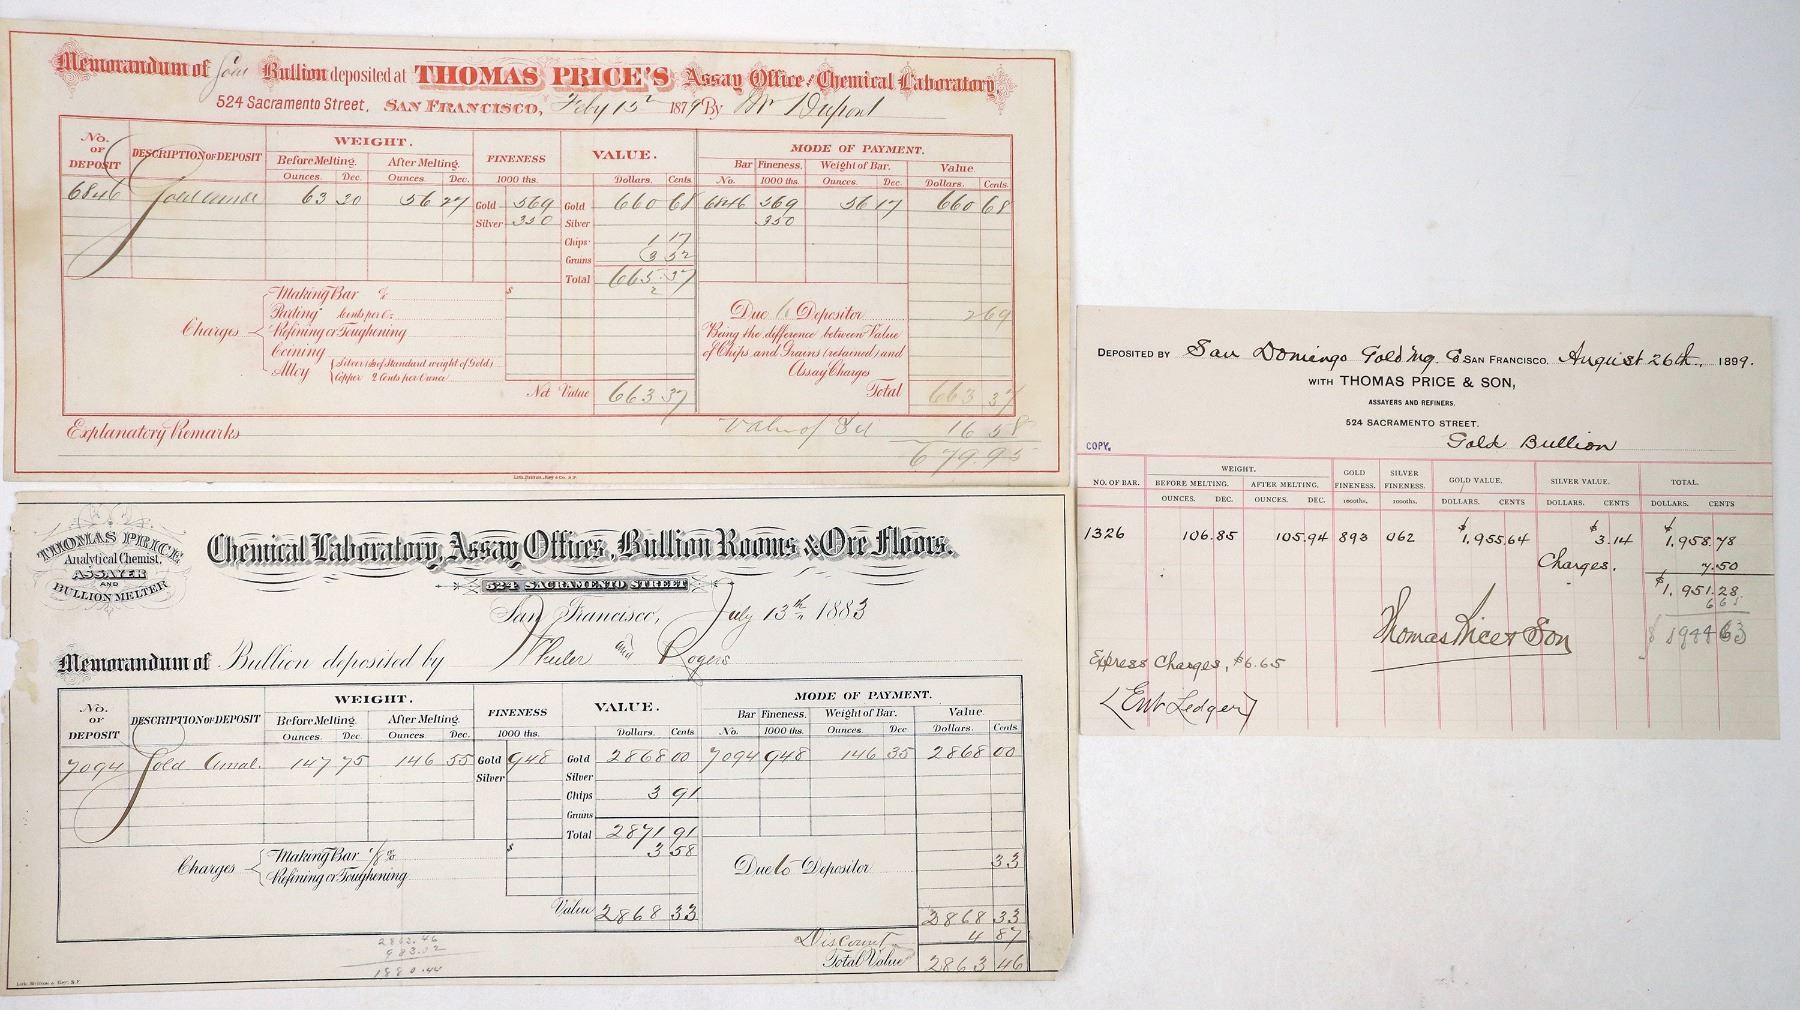 Memorandum of Gold Bullion deposited at THOMAS PRICE'S Assay Office & Chemical Laboratory,
524 Sacramento Street, SAN FRANCISCO, Feby 13th 1879 By Mr Dupont
No. OF DEPOSIT DESCRIPTION OF DEPOSIT WEIGHT. FINENESS VALUE. MODE OF PAYMENT.
Before Melting. After Melting. Bar Fineness. Weight of Bar. Value
Ounces. Dec. Ounces. Dec. 1000 ths. Dollars. Cents No. 1000 ths. Ounces. Dec. Dollars. Cents.
6846 63 20 56 27 Gold 569 Gold 660 68 6846 569 56 17 660 68
Silver 350 Silver 350
Chips 1 17
Grains 3 52
Total 665 37
2
Charges
Making Bar %
Parting Cents per Oz
Refining or Toughening
Coining
Alloy Silver (⅛ of Standard weight of Gold)
Copper 2 Cents per Ounce
$
Due to Depositor 2 69
Being the difference between Value
of Chips and Grains (retained) and
Assay Charges
Net Value 663 37 Total 663 37
Explanatory Remarks Value of Sil 16 58
679 95
THOMAS PRICE
Analytical Chemist,
ASSAYER
AND
BULLION MELTER
Chemical Laboratory, Assay Offices, Bullion Rooms & Ore Floors.
524 SACRAMENTO STREET
San Francisco, July 13th 1883
Memorandum of Bullion deposited by Wheeler and Rogers
No. OF DEPOSIT DESCRIPTION OF DEPOSIT WEIGHT. FINENESS VALUE. MODE OF PAYMENT.
Before Melting. After Melting. Bar Fineness. Weight of Bar. Value
Ounces. Dec. Ounces. Dec. 1000 ths. Dollars. Cents No. 1000 ths. Ounces. Dec Dollars. Cents.
7094 Gold Amal. 147 75 146 55 Gold 948 Gold 2868 00 7094 948 146 35 2868 00
Silver Silver
Chips 3 91
Grains
Total 2871 91
Charges Making Bar 1/8 % $ 3 58
Refining or Toughening
Due to Depositor 33
Value 2868 33 2868 33
Discount 4 87
Total Value 2863 46
2862.46
983.02
1880.44
DEPOSITED BY San Domingo Gold Mg. Co SAN FRANCISCO. August 26th, 1899.
WITH THOMAS PRICE & SON,
ASSAYERS AND REFINERS.
524 SACRAMENTO STREET.
COPY. Gold Bullion
NO. OF BAR. WEIGHT. GOLD FINENESS. SILVER FINENESS. GOLD VALUE. SILVER VALUE. TOTAL.
BEFORE MELTING. AFTER MELTING.
OUNCES. DEC. OUNCES. DEC. 1000ths. 1000ths. DOLLARS. CENTS DOLLARS. CENTS DOLLARS. CENTS
1326 106.85 105.94 893 062 $1,955.64 $3.14 $1,958.78
Charges. 7.50
$1,951.28
6 65
$ 1944 63
Thomas Price & Son
Express Charges, $6.65
(Ent Ledger)